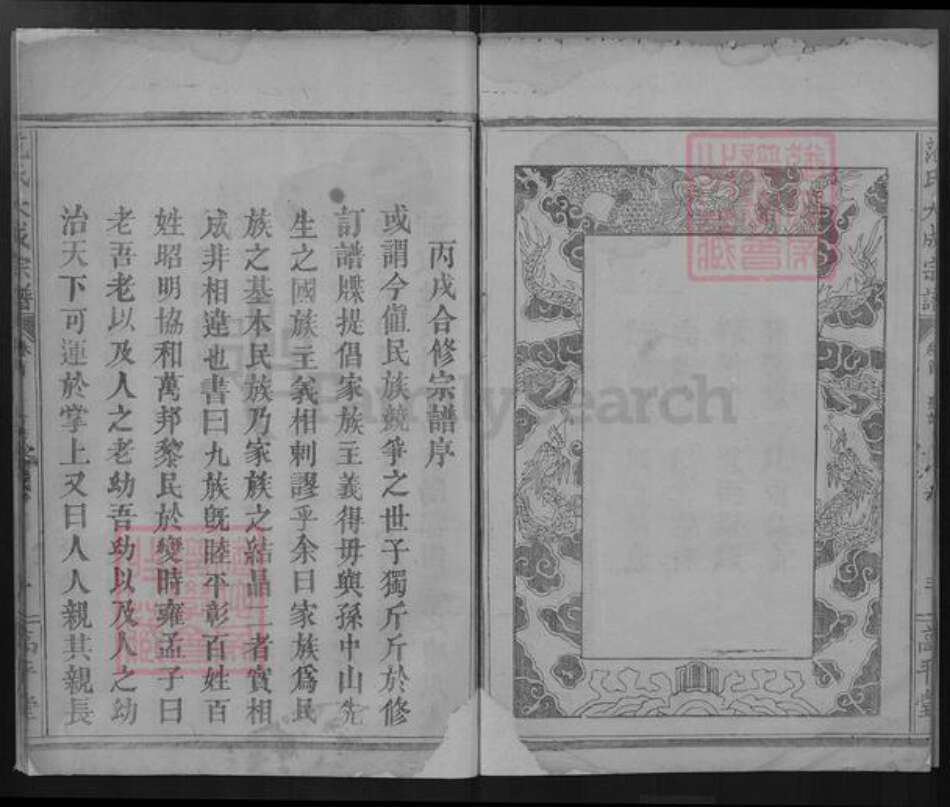 范氏大成宗譜
高平堂
丙戌合修宗譜序
或謂今值民族競爭之世子獨斤斤於修
訂譜牒提倡家族主義得毋與孫中山先
生之國族主義相刺謬乎余曰家族爲民
族之基本民族乃家族之結晶二者實相
成非相違也書曰九族旣睦平彰百姓百
姓昭明協和萬邦黎民於變時雍孟子曰
老吾老以及人之老幼吾幼以及人之幼
治天下可運於掌上又曰人人親其親長
氏大成宗譜
高平堂
FamilySearch